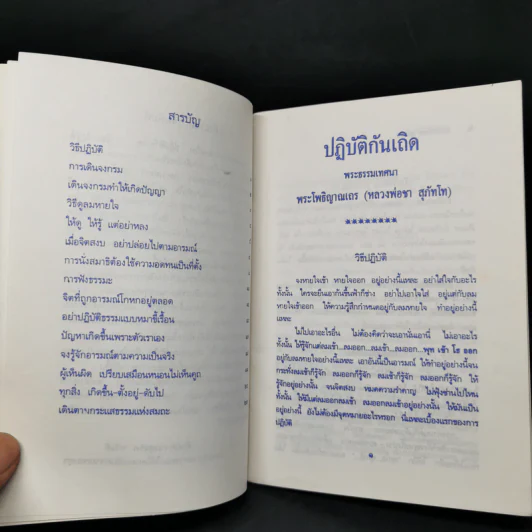 สารบัญ
วิธีปฏิบัติ
การเดินจงกรม
เดินจงกรมทำให้เกิดปัญญา
วิธีดูลมหายใจ
ให้ดู ให้รู้ แต่อย่าหลง
เมื่อจิตสงบ อย่าปล่อยไปตามอารมณ์
การนั่งสมาธิต้องใช้ความอดทนเป็นที่ตั้ง
การฟังธรรมะ
จิตที่ถูกอารมณ์โกหกอยู่ตลอด
อย่าปฏิบัติธรรมแบบหมาขี้เรื้อน
ปัญหาเกิดขึ้นเพราะตัวเราเอง
จงรู้จักอารมณ์ตามความเป็นจริง
ผู้เห็นผิด เปรียบเสมือนหนอนไม่เห็นคูถ
ทุกสิ่ง เกิดขึ้น-ตั้งอยู่-ดับไป
เดินตามกระแสธรรมแห่งสมถะ
ปฏิบัติกันเถิด
พระธรรมเทศนา
พระโพธิญาณเถร (หลวงพ่อชา สุภัทโท)
********
วิธีปฏิบัติ
จงหายใจเข้า หายใจออก อยู่อย่างนี้แหละ อย่าใส่ใจกับอะไร
ทั้งนั้น ใครจะยืนเอาก้นขึ้นฟ้าก็ช่าง อย่าไปเอาใจใส่ อยู่แต่กับลม
หายใจเข้าออก ให้ความรู้สึกกำหนดอยู่กับลมหายใจ ทำอยู่อย่างนี้
แหละ
ไม่ไปเอาอะไรอื่น ไม่ต้องคิดว่าจะเอานั่นเอานี่ ไม่เอาอะไร
ทั้งนั้น ให้รู้จักแต่ลมเข้า...ลมออก...ลมเข้า...ลมออก...พุท เข้า โธ ออก
อยู่กับลมหายใจอย่างนี้แหละ เอาอันนี้เป็นอารมณ์ ให้ทำอยู่อย่างนี้จน
กระทั่งลมเข้าก็รู้จัก ลมออกก็รู้จัก ลมเข้าก็รู้จัก ลมออกก็รู้จัก ให้
รู้จักอยู่อย่างนั้น จนจิตสงบ หมดความรำคาญ ไม่ฟุ้งซ่านไปไหน
ทั้งนั้น ให้มีแต่ลมออกลมเข้า ลมออกลมเข้าอยู่อย่างนั้น ให้มันเป็น
อยู่อย่างนี้ ยังไม่ต้องมีจุดหมายอะไรหรอก นี่แหละเบื้องแรกของการ
ปฏิบัติ